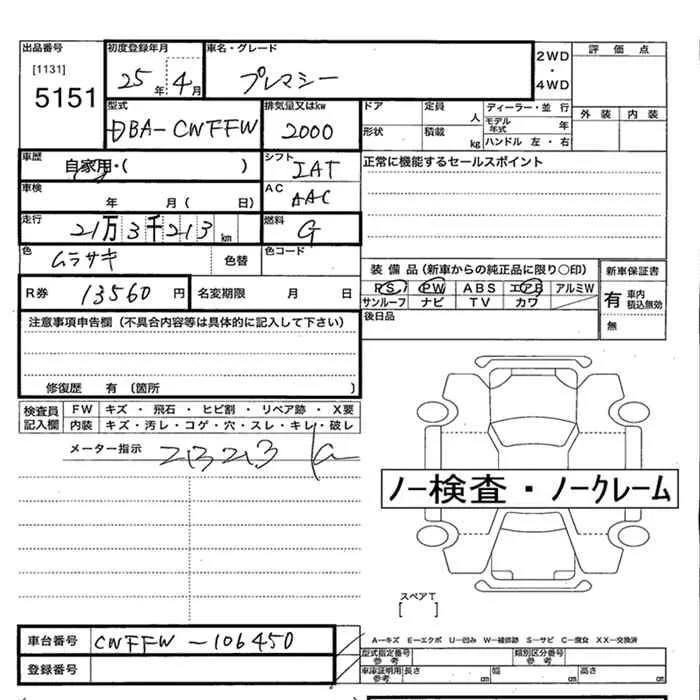 出品番号
[1131]
5151
初度登録年月
25年 4月
車名・グレード
プレマシー
2WD
・
4WD
評価点
外装 内装
型式
DBA-CWFFW
排気量又はkw
2000
ドア 定員 人
形状 積載 kg
ディーラー・並行
モデル年式 年
ハンドル 左・右
車歴
自家用・( )
シフト
IAT
正常に機能するセールスポイント
車検
年 月( 日)
AC
AAC
走行
21万3千213 km
燃料
G
色
ムラサキ
色替
色コード
R券 13560 円
名変期限 月 日
装備品(新車からの純正品に限り○印)
PS PW ABS エアB アルミW
サンルーフ ナビ TV カワ
新車保証書
有 車内積込無効
無
後日品
注意事項申告欄(不具合内容等は具体的に記入して下さい)
修復歴 有(箇所 )
検査員記入欄
FW キズ・飛石・ヒビ割・リペア跡・X要
内装 キズ・汚レ・コゲ・穴・スレ・キレ・破レ
メーター指示
ノー検査・ノークレーム
スペアT
[ ]
車台番号
CWFFW-106450
登録番号
A-キズ E-エクボ U-凹み W-補修跡 S-サビ C-腐食 XX-交換済
型式指定番号 参考
類別区分番号 参考
車庫証明用 参考 長さ cm 幅 cm 高さ cm